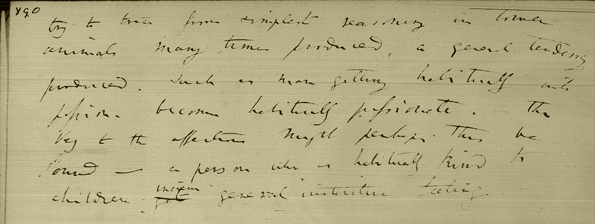 try to trace from simplest reasoning in lower
animals many times produced, a general tendency
produced. Such as man getting habitually into
passion become habitually passionate. The
key to the affections might perhaps thus be
found — a person who is habitually kind to
children increases general instinctive feeling